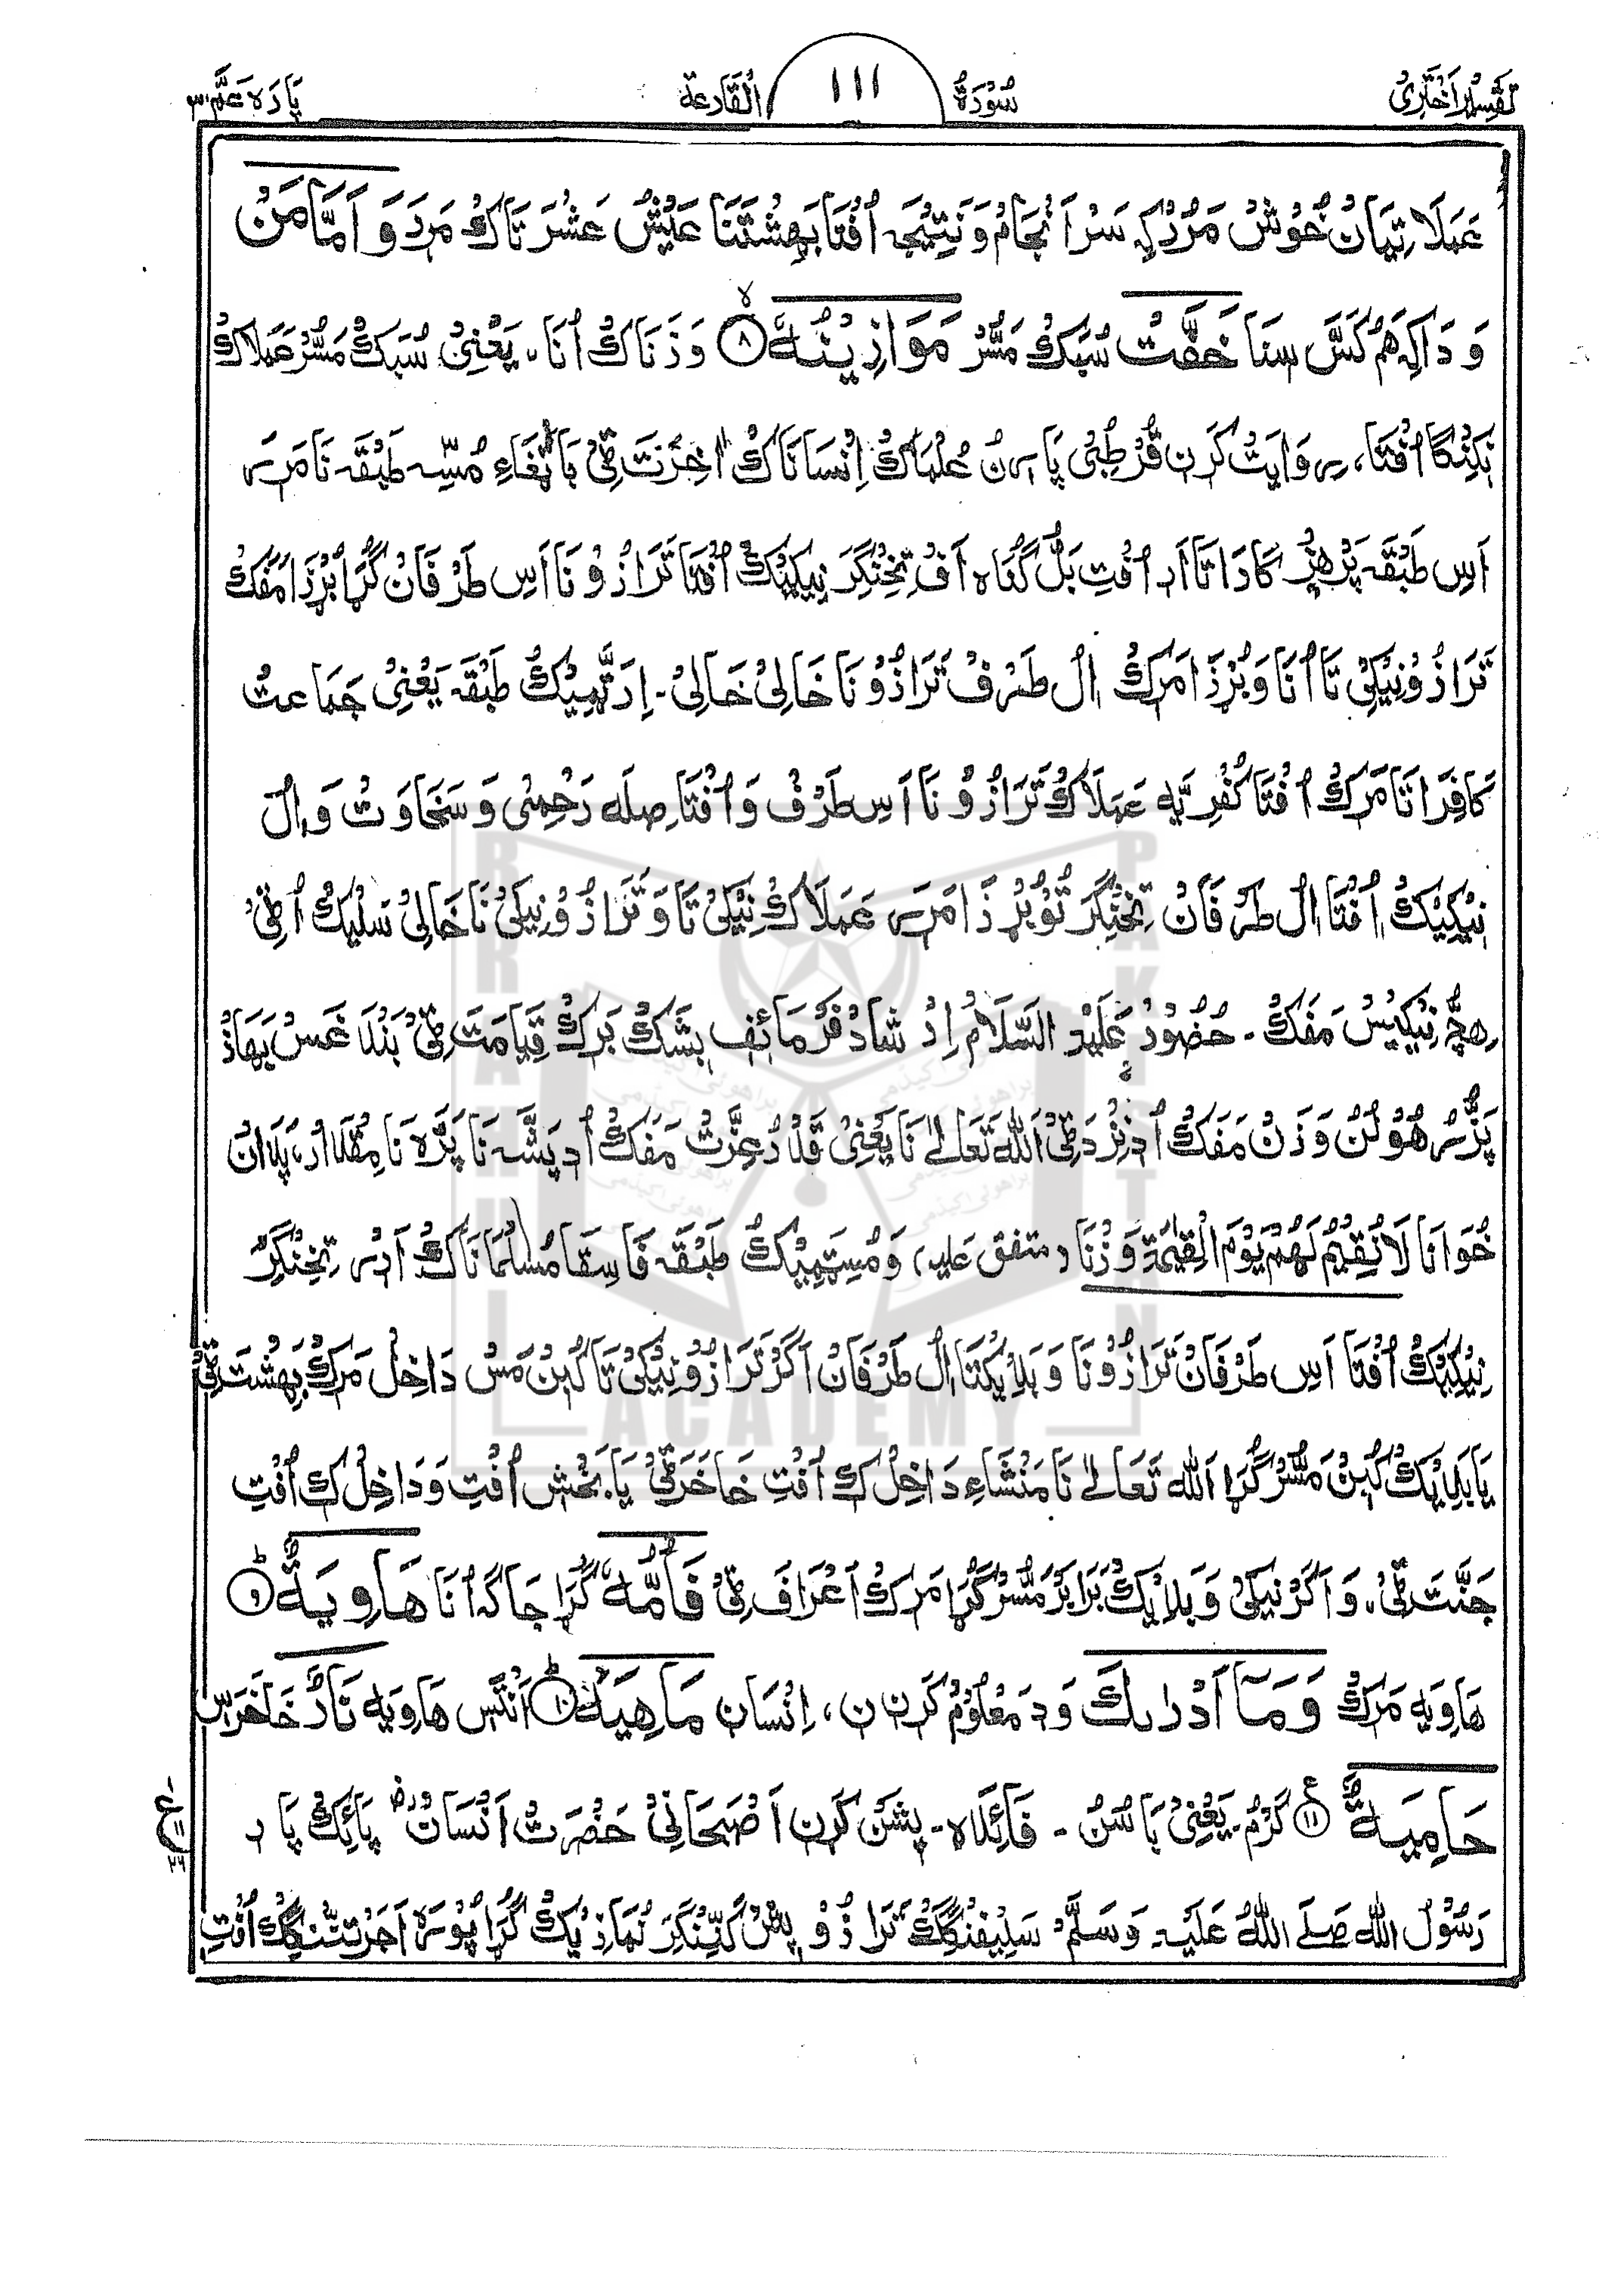 تفسیر اختری
سُورَۃُ
۱۱۱
اَلْقَارِعَة
پارہ عمّ ۳۰
عَمَلَاتِیَانْ خُوشْ مَرْدُکِہ سَرْ اَنْجَامْ وَ نَتِیْجَہ اُفْتَا بَہِشْتَنَا عَیْشْ عَشْرَتَاکْ مَرَدَ وَ اَمَّا مَنْ
وَ دَاکِہ ہَمْ کَسَّ سِنَا خَفَّتْ سُبَکْ مَسُّرْ مَوَازِیْنُهٗ ۸ وَزَنَاکْ اُنَا، یَعْنِیْ سُبَکْ مَسُّرْ عَمَلَاکْ
نِکِیْنْگَا اُفْتَا، رِوَایَتْ کَرِنْ قُرْطُبِیْ پَارِنْ عُلْمَاکْ اِنْسَانَاکْ اٰخِرَتْ ٹِیْ بَاتْفَاءِ مُسِّہ طَبْقَہ نَا مَرِرَ
اَسِ طَبْقَہ پَرْہِیزْ گَادَاتَا اَدِ اُفْتِ بَلْ گُنَاہ اَفْ تِخِنْگِرَ نِیکِیْکْ اُفْتَا تَرَازُوْ نَا اَسِ طَرْفَانْ گُڑَا بُرْزَا مَفَکْ
تَرَازُوْ نِیْکِیْ تَا اُنَا وَ بُرْزَا مَرَکْ اِلْ طَرْفْ تَرَازُوْ نَا خَالِیْ خَالِیْ۔ اِرَٹْمِیْکْ طَبْقَہ یَعْنِیْ جَمَاعتْ
کَافِرَاتَا مَرَکْ اُفْتَا کُفْرِیَّہ عَمَلَاکْ تَرَازُوْ نَا اَسِ طَرْفْ وَ اُفْتَا صِلَہ رَحْمِیْ وَ سَخَاوَتْ وَ اِلْ
نِیْکِیْکْ اُفْتَا اِلْ طَرْفَانْ تِخِنْگِرَ تُوْ بُرْزَا مَرِرَ عَمَلَاکْ نِیْکِیْ تَا وَ تَرَازُوْ نِیکِیْ نَا خَالِیْ سَلِیْکْ اُٹِیْ
ہِچّ نِیْکِیْسْ مَفَکْ۔ حُضُوْرْ عَلَیْہِ السَّلَامْ اِرْشَادْ فَرْمَائِفِ بِشَکْ بَرَکْ قِیَامَتْ ٹِیْ بَنْدَغَسْ بَہَازْ
پِزُّرْ ہُوْلُنْ وَزَنْ مَفَکْ اُدِ نِزْدْ ٹِیْ اَللہ تَعَالٰے نَا یَعْنِیْ قَدْرُ عِزَّتْ مَفَکْ اُدِ پَشَّہ نَا پَرَّہ نَا مِقْدَارْ، پَدَانْ
خُوَانَا لَا نُقِیْمُ لَهُمْ یَوْمَ الْقِیٰمَةِ وَزْنًا (متفق علیہ) وَ مُسِٹْمِیْکْ طَبْقَہ فَاسِقَا مُسُلْمَانَاکْ اَدِرْ تِخِنْگِرَ
نِیْکِیْکْ اُفْتَا اَسِ طَرْفَانْ تَرَازُوْ نَا وَ بَدِیْکْتَا اِلْ طَرْفَانْ اَگَرْ تَرَازُوْ نِیْکِیْ تَا کُبِنْ مَسْ دَاخِلْ مَرَکْ بِہِشْتَ ٹِیْ
یَا بَدِیْکْ کُبِنْ مَسُّرْ گُڑَا اَللہ تَعَالٰے نَا مَنْشَاءِ دَاخِلْ کِ اُفْتِ خَاخَرْ ٹِیْ یَا بَخْشِ اُفْتِ وَ دَاخِلْ کِ اُفْتِ
جَنَّتْ ٹِیْ، وَ اَگَرْ نِیْکِیْ وَ بَدِیْکْ بَرَابَرْ مَسُّرْ گُڑَا مَرَکْ اَعْرَافْ ٹِیْ فَاُمُّهٗ گُڑَا جَاگَہ اُنَا هَاوِیَةٌ ۹
ہَاوِیَہ مَرَکْ وَمَاۤ اَدْرٰىكَ وَدِ مَعْلُوْمْ کَرِنْ نِ، اِنْسَانْ مَاهِیَهْ ۱۰ اَنْتَسْ ہَاوِیَہ نَارٌ خَاخَرَسْ
حَامِیَةٌ ۱۱ گَرْمْ۔ یَعْنِیْ بَاسُنْ۔ فَائِدَہ۔ پِشَنْ کَرِنْ اَصْبَحَانِیْ حَضْرَتْ اَنَسَانْ رض پَائِکْ پَارِ
رَسُوْلُ اللہ صَلَّے اللہُ عَلَیْہِ وَسَلَّمْ سَلِیْفِنْگِکْ تَرَازُوْ پِشْ کَنِّنْگِرَ نَمَازِیْکْ گُڑَا پُوْرَہ اَجَرْ تِنِّنْگِکْ اُفْتِ